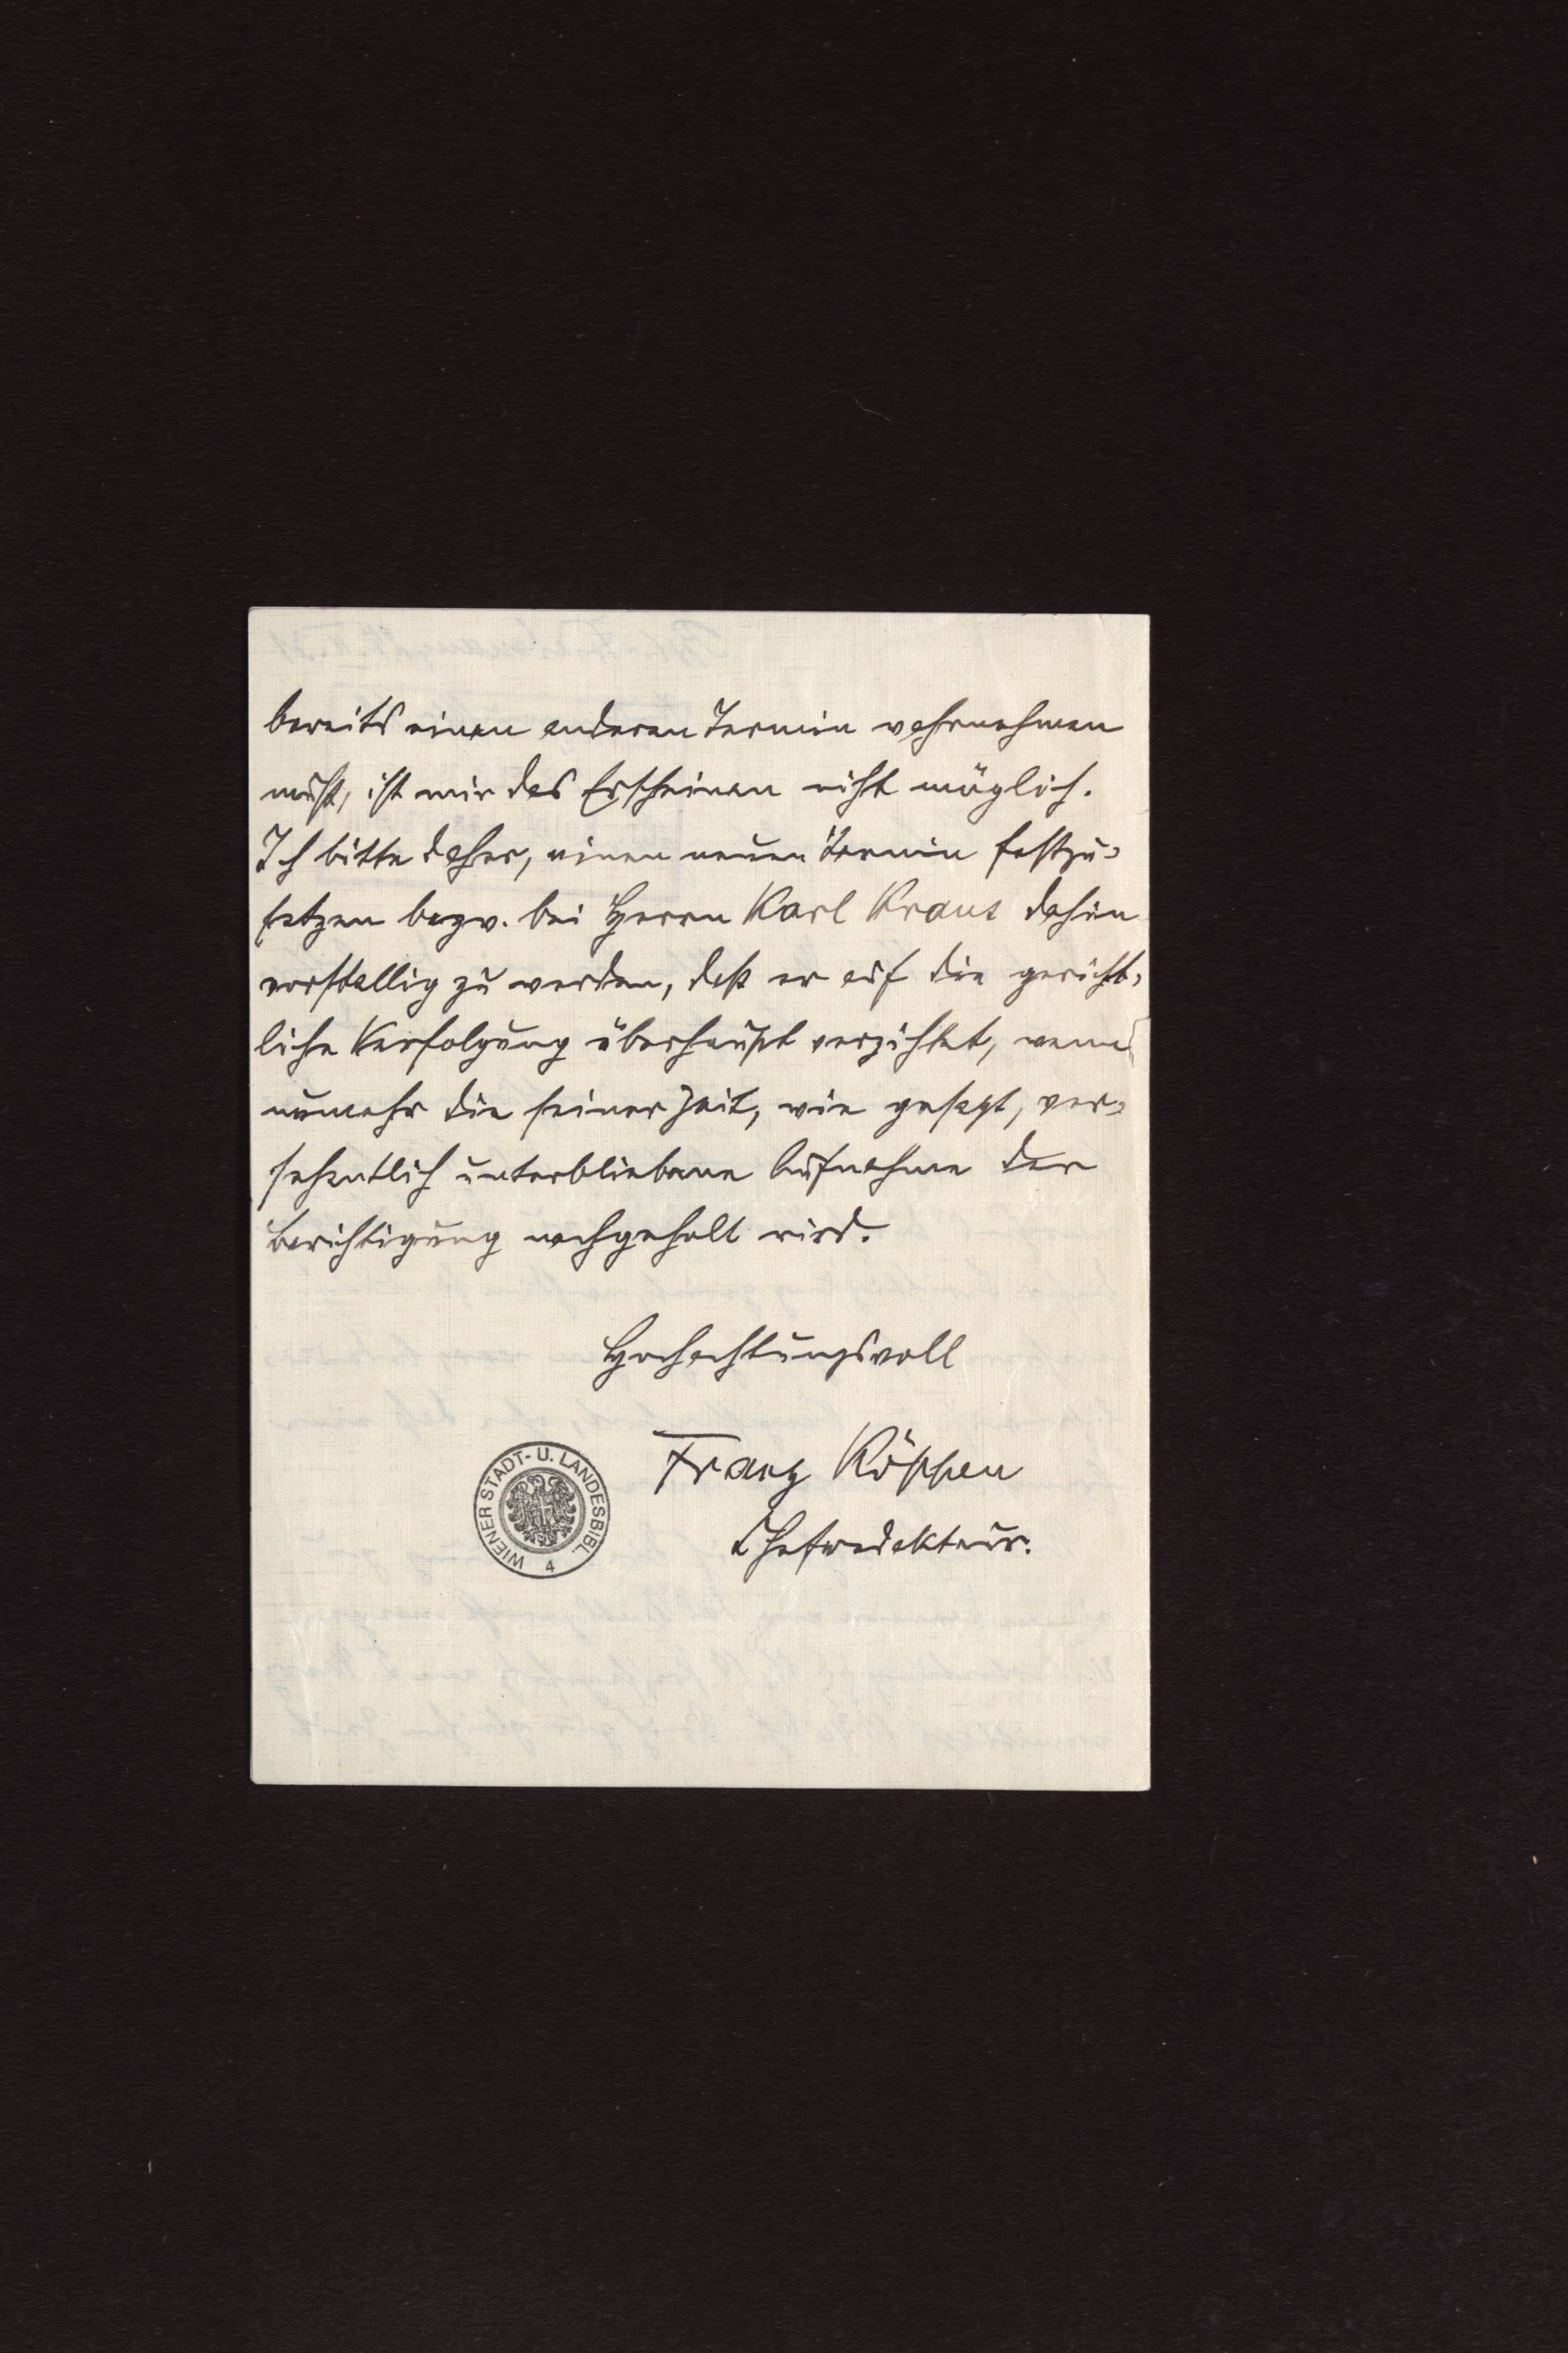 bereits einen anderen Termin wahrnehmen
muß, ist mir das Erscheinen nicht möglich.
Ich bitte daher, einen neuen Termin festzu-
setzen bezw. bei Herrn Karl Kraus dahin
vorstellig zu werden, daß er auf die gericht-
liche Verfolgung überhaupt verzichtet, wenn
nunmehr die seiner Zeit, wie gesagt, ver-
sehentlich unterbliebene Aufnahme der
Berichtigung nachgeholt wird.
Hochachtungsvoll
Franz Köppen
Chefredakteur.
WIENER STADT- U. LANDESBIBL.
4